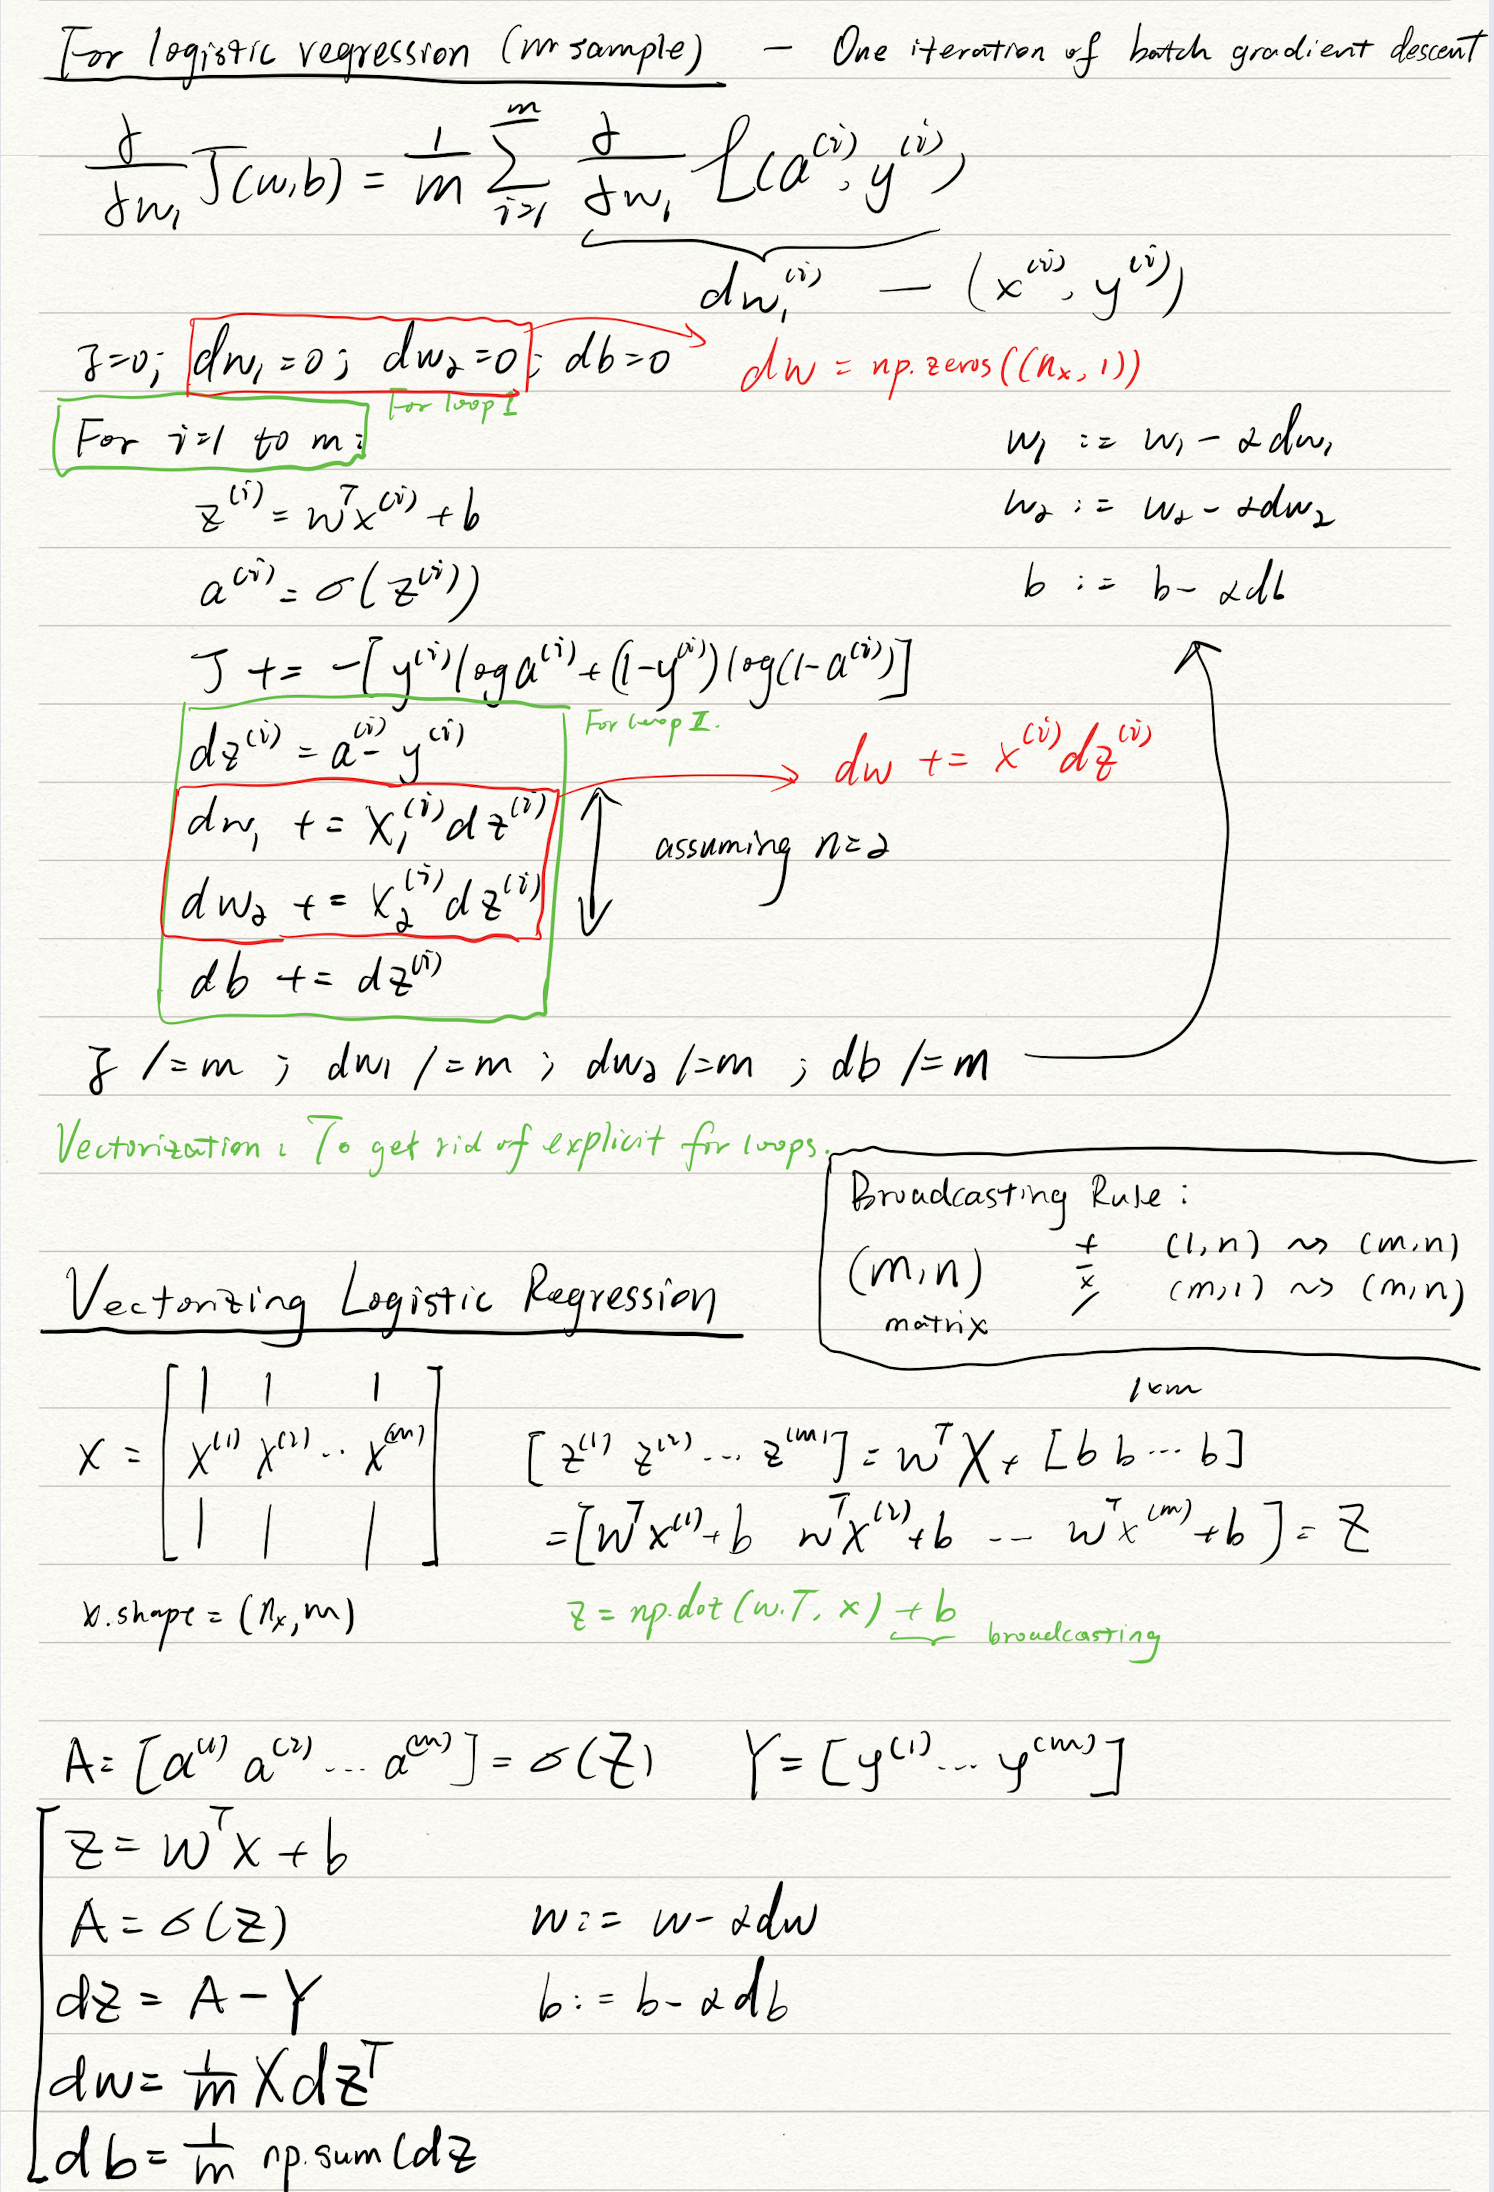 For logistic regression (m sample) — One iteration of batch gradient descent
∂/∂w₁ J(w,b) = 1/m Σᵢ₌₁ᵐ ∂/∂w₁ L(a⁽ⁱ⁾, y⁽ⁱ⁾)
dw₁⁽ⁱ⁾ — (x⁽ⁱ⁾, y⁽ⁱ⁾)
J=0; dw₁=0; dw₂=0; db=0
dw = np.zeros((nₓ, 1))
For loop I
For i=1 to m:
w₁ := w₁ - αdw₁
z⁽ⁱ⁾ = wᵀx⁽ⁱ⁾ + b
w₂ := w₂ - αdw₂
a⁽ⁱ⁾ = σ(z⁽ⁱ⁾)
b := b - αdb
J += -[y⁽ⁱ⁾ log a⁽ⁱ⁾ + (1-y⁽ⁱ⁾) log(1-a⁽ⁱ⁾)]
For loop II.
dz⁽ⁱ⁾ = a⁽ⁱ⁾ - y⁽ⁱ⁾
dw += x⁽ⁱ⁾dz⁽ⁱ⁾
dw₁ += x₁⁽ⁱ⁾dz⁽ⁱ⁾
assuming n=2
dw₂ += x₂⁽ⁱ⁾dz⁽ⁱ⁾
db += dz⁽ⁱ⁾
J /=m ; dw₁ /=m ; dw₂ /=m ; db /=m
Vectorization: To get rid of explicit for loops.
Broadcasting Rule:
(m,n) + - × / (1,n) ⇝ (m,n)
(m,1) ⇝ (m,n)
matrix
Vectorizing Logistic Regression
1×m
X = [x⁽¹⁾ x⁽²⁾ ·· x⁽ᵐ⁾]
[z⁽¹⁾ z⁽²⁾ ... z⁽ᵐ⁾] = wᵀX + [b b ... b]
= [wᵀx⁽¹⁾+b wᵀx⁽²⁾+b -- wᵀx⁽ᵐ⁾+b] = Z
X.shape = (nₓ, m)
z = np.dot(w.T, x) + b
broadcasting
A = [a⁽¹⁾ a⁽²⁾ ... a⁽ᵐ⁾] = σ(Z) Y = [y⁽¹⁾ ... y⁽ᵐ⁾]
Z = wᵀX + b
A = σ(Z)
w := w - αdw
dZ = A - Y
b := b - αdb
dw = 1/m XdZᵀ
db = 1/m np.sum(dZ